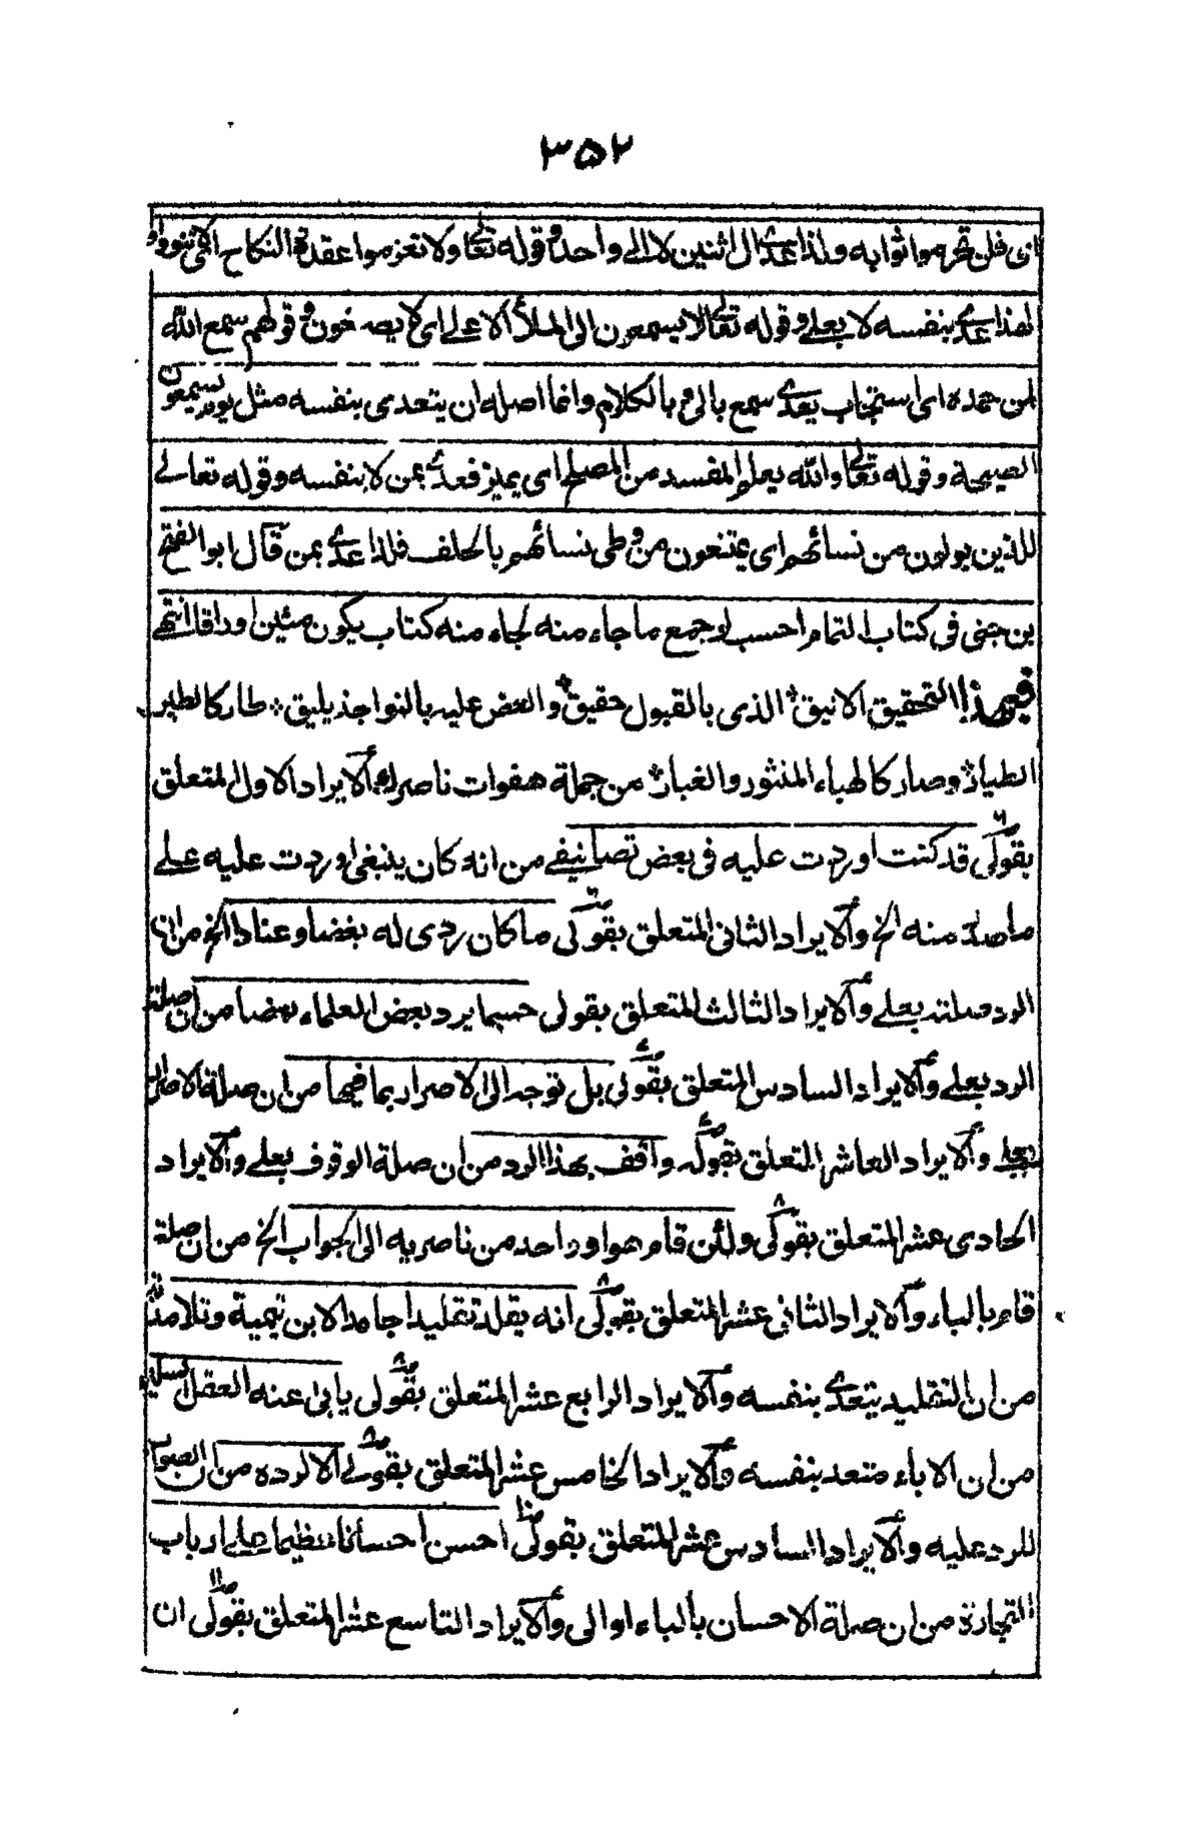 ٣٥٢
اى فلن تحرموا ثوابه ولذا عدى الى اثنين لا الى واحد وقوله تعالى ولا تعزموا عقدة النكاح اى لا تنووا و
لهذا عدى بنفسه لا بعلى وقوله تعالى لا يسمعون الى الملأ الاعلى اى لا يصغون و قولهم سمع الله
لمن حمده اى استجاب يعدى سمع بالى و باللام وانما اصله ان يتعدى بنفسه مثل يوم يسمعون
الصيحة وقوله تعالى والله يعلم المفسد من المصلح اى يميز فعدى بمن لا بنفسه وقوله تعالى
للذين يولون من نسائهم اى يمتنعون من وطى نسائهم بالحلف فلذا عدى بمن قال ابو الفتح
بن جنى فى كتاب التمام احسب لو جمع ما جاء منه لجاء منه كتاب يكون مئين اوراقا انتهى
فبهذا التحقيق الانيق الذى بالقبول حقيق والعض عليه بالنواجذ يليق طار كالطير
الطيار وصار كالهباء المنثور والغبار من جملة هفوات ناصرك الايراد الاول المتعلق
بقولى قد كنت اوردت عليه فى بعض تصانيفى من انه كان ينبغى اوردت عليه على
ما صدر منه الخ والايراد الثانى المتعلق بقولى ما كان ردى له بغضا وعنادا الخ من ان
الرد صلته بعلى والايراد الثالث المتعلق بقولى حسبما يرد بعض العلماء بعضا من ان صلة
الرد بعلى والايراد السادس المتعلق بقولى بل توجه الى الاصرار بما فيها من ان صلة الاصرار
بعلى والايراد العاشر المتعلق بقوله واقف بهذا الرد من ان صلة الوقوف بعلى والايراد
الحادى عشر المتعلق بقولى ولئن قام هو او واحد من ناصريه الى الجواب الخ من ان صلة
قام بالباء والايراد الثانى عشر المتعلق بقولى انه يقلد تقليدا جامدا لابن تيمية وتلامذته
من ان التقليد يتعدى بنفسه والايراد الرابع عشر المتعلق بقولى يابى عنه العقل السليم
من ان الاباء متعد بنفسه والايراد الخامس عشر المتعلق بقولى الا لرده من ان الصواب
للرد عليه والايراد السادس عشر المتعلق بقولى احسن احسانا عظيما على ارباب
التجارة من ان صلة الاحسان بالباء او الى والايراد التاسع عشر المتعلق بقولى ان